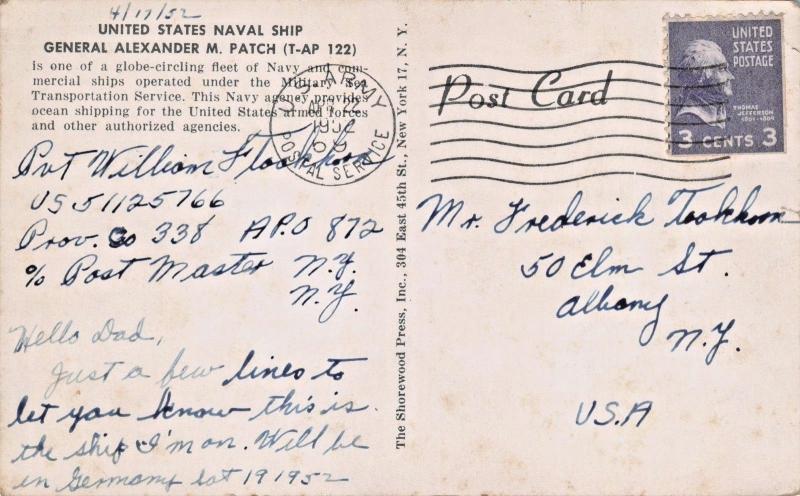 4/17/52
UNITED STATES NAVAL SHIP
GENERAL ALEXANDER M. PATCH (T-AP 122)
is one of a globe-circling fleet of Navy and com-
mercial ships operated under the Military Sea
Transportation Service. This Navy agency provides
ocean shipping for the United States armed forces
and other authorized agencies.
Pvt William
US 51125766
Prov. Co 338 APO 872
% Post Master N.Y.
N.Y.
Hello Dad,
Just a few lines to
let you know this is
the ship I'm on. Will be
in Germany sat 19 1952
The Shorewood Press, Inc., 304 East 45th St., New York 17, N. Y.
ARMY
1952
POSTAL SERVICE
Post Card
UNITED
STATES
POSTAGE
THOMAS
JEFFERSON
1801-1809
3 CENTS 3
Mr. Frederick
50 Elm St.
Albany
N.Y.
USA